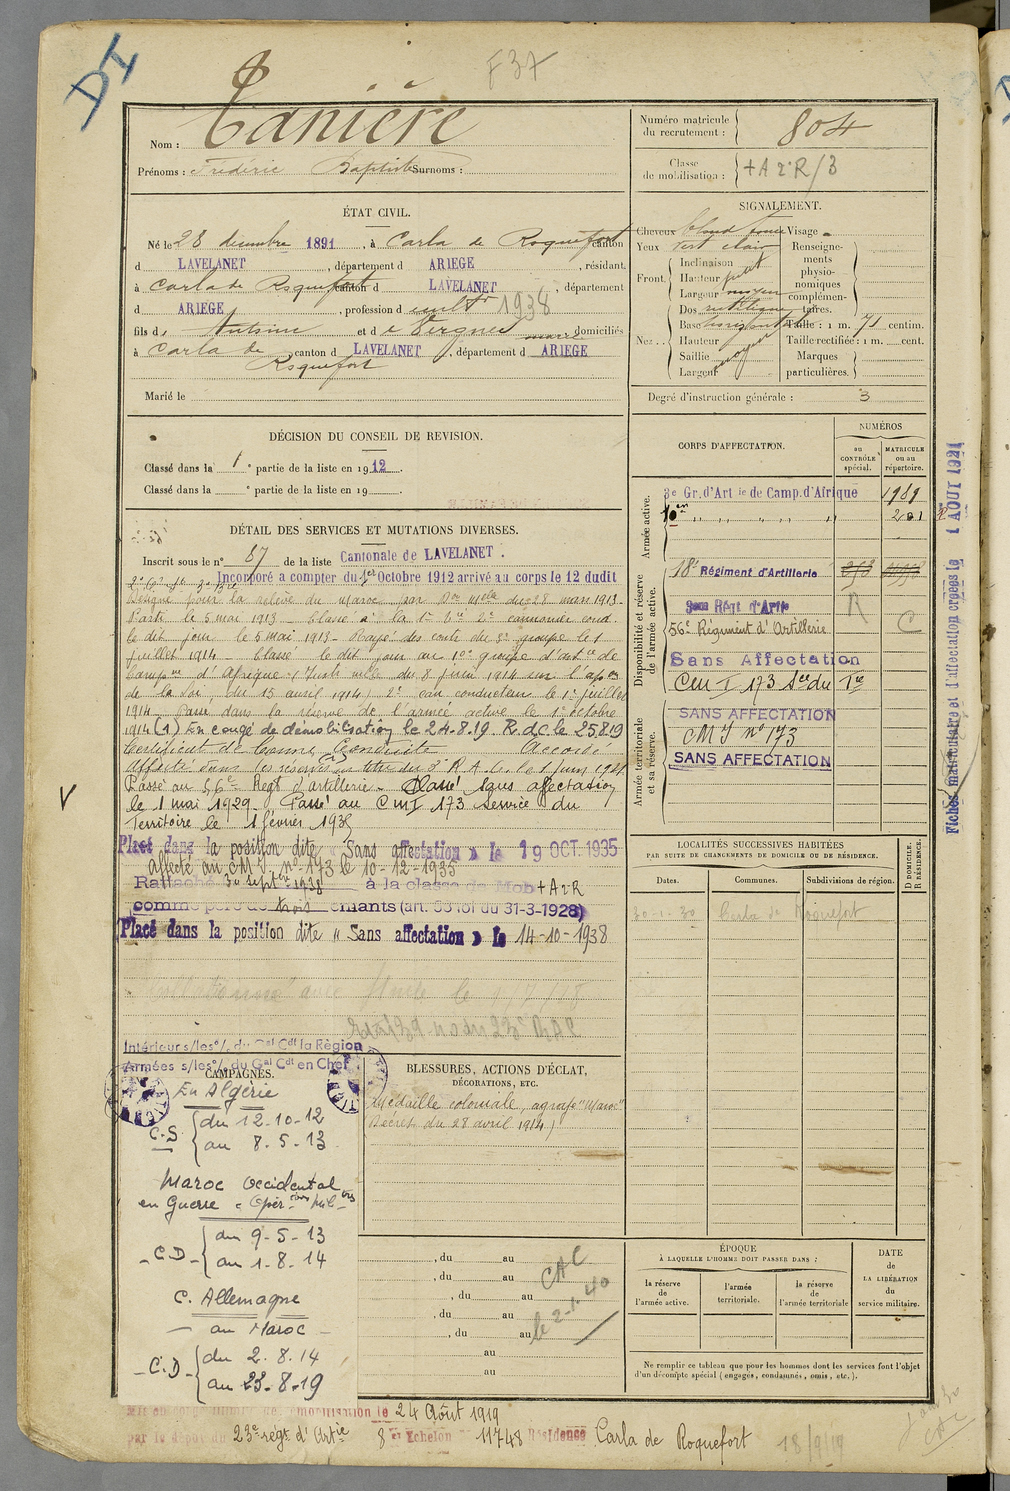 DI
F37
Nom : Tanière
Prénoms : Frédéric Baptiste Surnoms :
Numéro matricule du recrutement : 804
Classe de mobilisation : +A 2e R/3
ÉTAT CIVIL.
Né le 28 décembre 1891, à Carla de Roquefort canton
d LAVELANET, département d ARIEGE, résidant
à Carla de Roquefort canton d LAVELANET, département
d ARIEGE, profession de cultr 1938
fils d' Antoine et d e Vergnes, domiciliés
à Carla de Roquefort, canton d LAVELANET, département d ARIEGE
Marié le
SIGNALEMENT.
Cheveux blond foncé Visage
Yeux vert clair Renseignements physionomiques complémentaires.
Front. Inclinaison
Hauteur petit
Largeur moyen
Nez. Dos rectiligne
Base Taille : 1 m. 71 centim.
Hauteur Taille rectifiée : 1 m. cent.
Saillie moyen Marques
Largeur particulières.
Degré d'instruction générale : 3
DÉCISION DU CONSEIL DE REVISION.
Classé dans la 1e partie de la liste en 1912.
Classé dans la e partie de la liste en 19
DÉTAIL DES SERVICES ET MUTATIONS DIVERSES.
Inscrit sous le n° 87 de la liste Cantonale de LAVELANET.
Incorporé a compter du 1er Octobre 1912 arrivé au corps le 12 dudit
Désigné pour la relève du Maroc par du 28 mars 1913.
Parti le 5 mai 1913 - Classé à la canonnier cond.
le dit jour le 5 mai 1913 - Rayé des contr du 3e groupe le 1
juillet 1914 Classé le dit jour au 10e groupe d'artie de
Campne d'Afrique
de la Loi du 15 avril 1914) 2e can conducteur le 1er juillet
1914 Passé dans la réserve de l'armée active le 1er octobre
1914 (1) En congé de démobilisation le 24.8.19. R.d.c. le 25.8.19
Certificat de bonne Conduite Accordé
Affecté dans les réserves au titre du R.A. le 1 Juin 1921
Passé au 56e Régt d'artillerie - Classé sans affectation
le 1 mai 1929. Passé au CMI 173 Service du
Territoire le 1 février 193
Placé dans la position dite "Sans affectation" le 19 OCT. 1935
Affecté au CMI n° 173 le 10-12-1935
Rattaché 30 septre 1938 à la classe de Mob +A2R
comme père de trois enfants (art. 58 loi du 31-3-1928)
Placé dans la position dite "Sans affectation" le 14-10-1938
Intérieur s/les o/. du Gal Cdt la Région
Armées s/les o/. du Gal Cdt en Chef
CORPS D'AFFECTATION.
NUMÉROS
au CONTRÔLE spécial.
MATRICULE ou au répertoire.
Armée active.
3e Gr. d'Artie de Camp. d'Afrique 1989
10en ,, ,, ,, ,, 201
Disponibilité et réserve de l'armée active.
18e Régiment d'Artillerie
56e Régiment d'Artillerie R C
Sans Affectation
CMI 173 Sce du Tre
Armée territoriale et sa réserve.
SANS AFFECTATION
CMI n° 173
SANS AFFECTATION
Fiches matriculaire et d'affectation créées le 1 AOUT 1921
LOCALITÉS SUCCESSIVES HABITÉES
PAR SUITE DE CHANGEMENTS DE DOMICILE OU DE RÉSIDENCE.
Dates. Communes. Subdivisions de région. D DOMICILE. R RÉSIDENCE.
Carla de Roquefort
CAMPAGNES.
En Algérie
C.S. du 12-10-12
au 8.5.13
Maroc Occidental
en Guerre
C.D. du 9-5-13
au 1-8-14
C. Allemagne
au Maroc
C.D. du 2.8.14
au 23.8.19
BLESSURES, ACTIONS D'ÉCLAT,
DÉCORATIONS, ETC.
Médaille coloniale, agrafe "Maroc"
Décret du 28 avril 1914)
, du au
, du au
, du au
, du au
, du au
au
au
CAC
le 2-1-40
ÉPOQUE
À LAQUELLE L'HOMME DOIT PASSER DANS :
la réserve de l'armée active.
l'armée territoriale.
la réserve de l'armée territoriale
DATE de LA LIBÉRATION du service militaire.
Ne remplir ce tableau que pour les hommes dont les services font l'objet
d'un décompte spécial (engagés, condamnés, omis, etc.).
Mis en congé illimité de démobilisation le 24 Août 1919
par le dépôt du 23e régt d'Artie 8e Echelon 11748 Résidence Carla de Roquefort 18/9/19